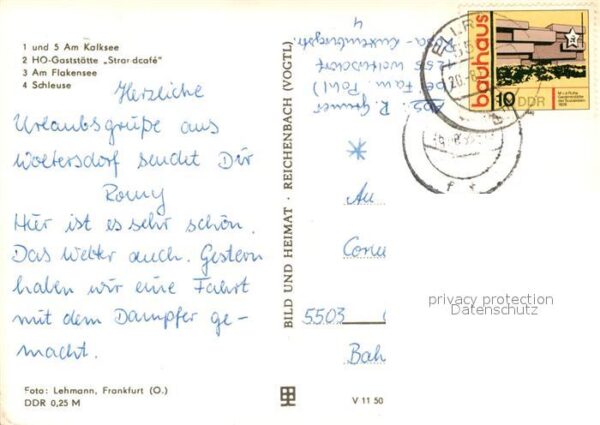 1 und 5 Am Kalksee
2 HO-Gaststätte „Strandcafé"
3 Am Flakensee
4 Schleuse
Herzliche
Urlaubsgrüße aus
Woltersdorf sendet Dir
Romy
Hier ist es sehr schön.
Das Wetter auch. Gestern
haben wir eine Fahrt
mit dem Dampfer ge-
macht.
Foto: Lehmann, Frankfurt (O.)
DDR 0,25 M
BILD UND HEIMAT · REICHENBACH (VOGTL)
V 11 50
Abs. R.
bei Fam. Pohl
1255 Woltersdorf
Rosa-Luxemburgstr.
4
An
Corne
5503
Bah
bauhaus
10 DDR
privacy protection
Datenschutz